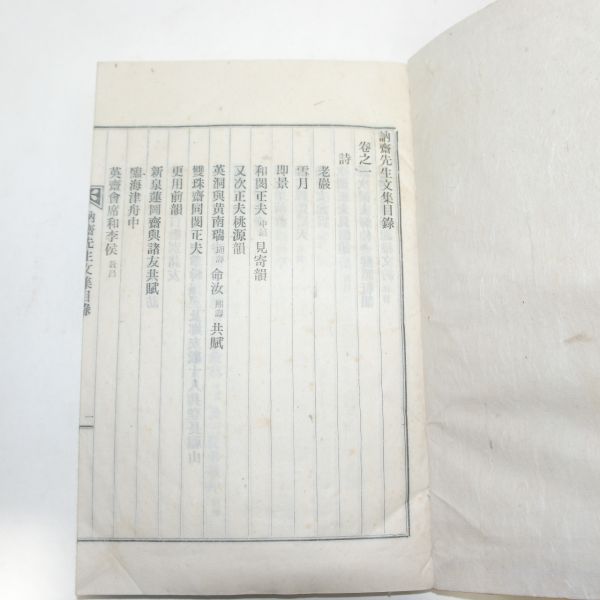 訥齋先生文集目錄
卷之一
詩
老巖
雪月
即景
和閔正夫見寄韻
又次正夫桃源韻
英洞與黃南瑞命汝共賦
雙珠齋同閔正夫
更用前韻
新泉蓮岡齋與諸友共賦
臨海津舟中
英齋會席和李侯
訥齋先生文集目錄
一